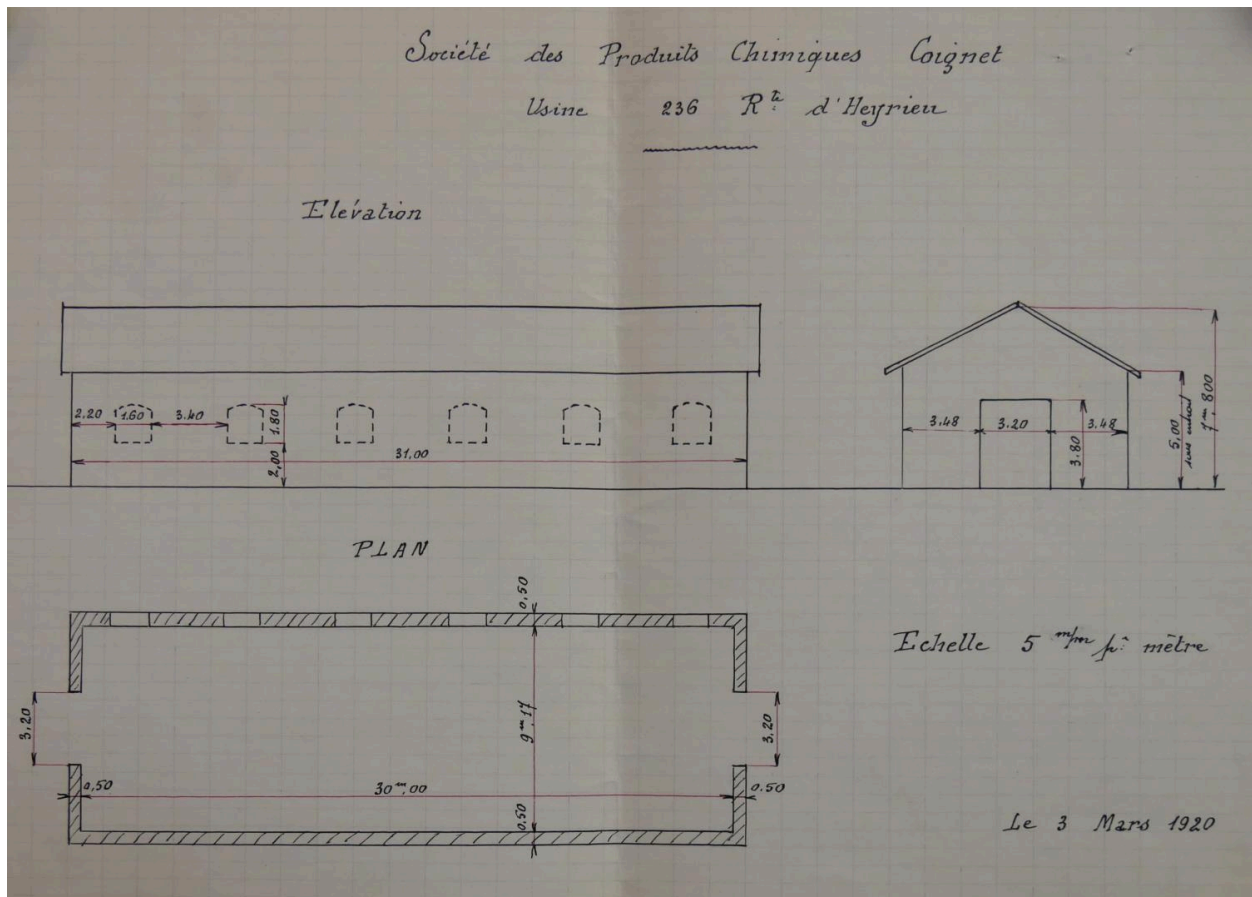 Société des Produits Chimiques Coignet
Usine 236 Rte d'Heyrieu
Elévation
2,20 1.60 3.40 1.80
2,00
31,00
3.48 3.20 3.48
3.80
5,00
7m,800
PLAN
0,50
3,20
9m17
3,20
0,50
30m,00
0.50
0,50
Echelle 5 m/m pr mètre
Le 3 Mars 1920